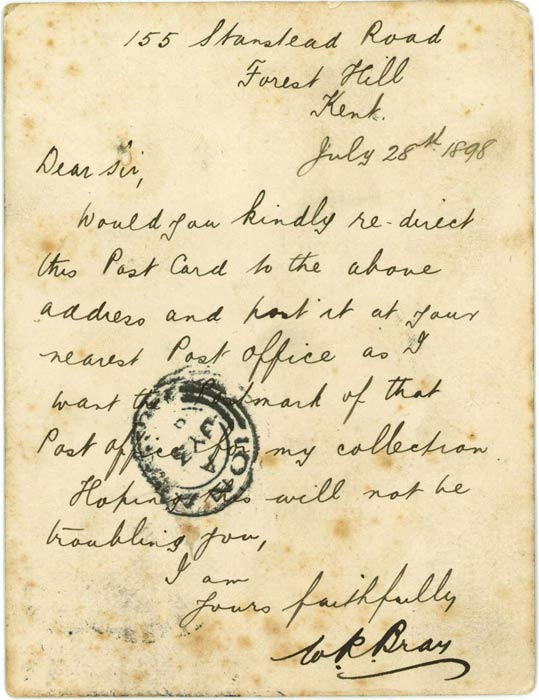 155 Stanstead Road
Forest Hill
Kent.
July 28th 1898
Dear Sir,
Would you kindly re-direct
this Post Card to the above
address and post it at your
nearest Post Office as I
want the Postmark of that
Post office for my collection.
Hoping this will not be
troubling you,
I am
Yours faithfully
W.R.Bray